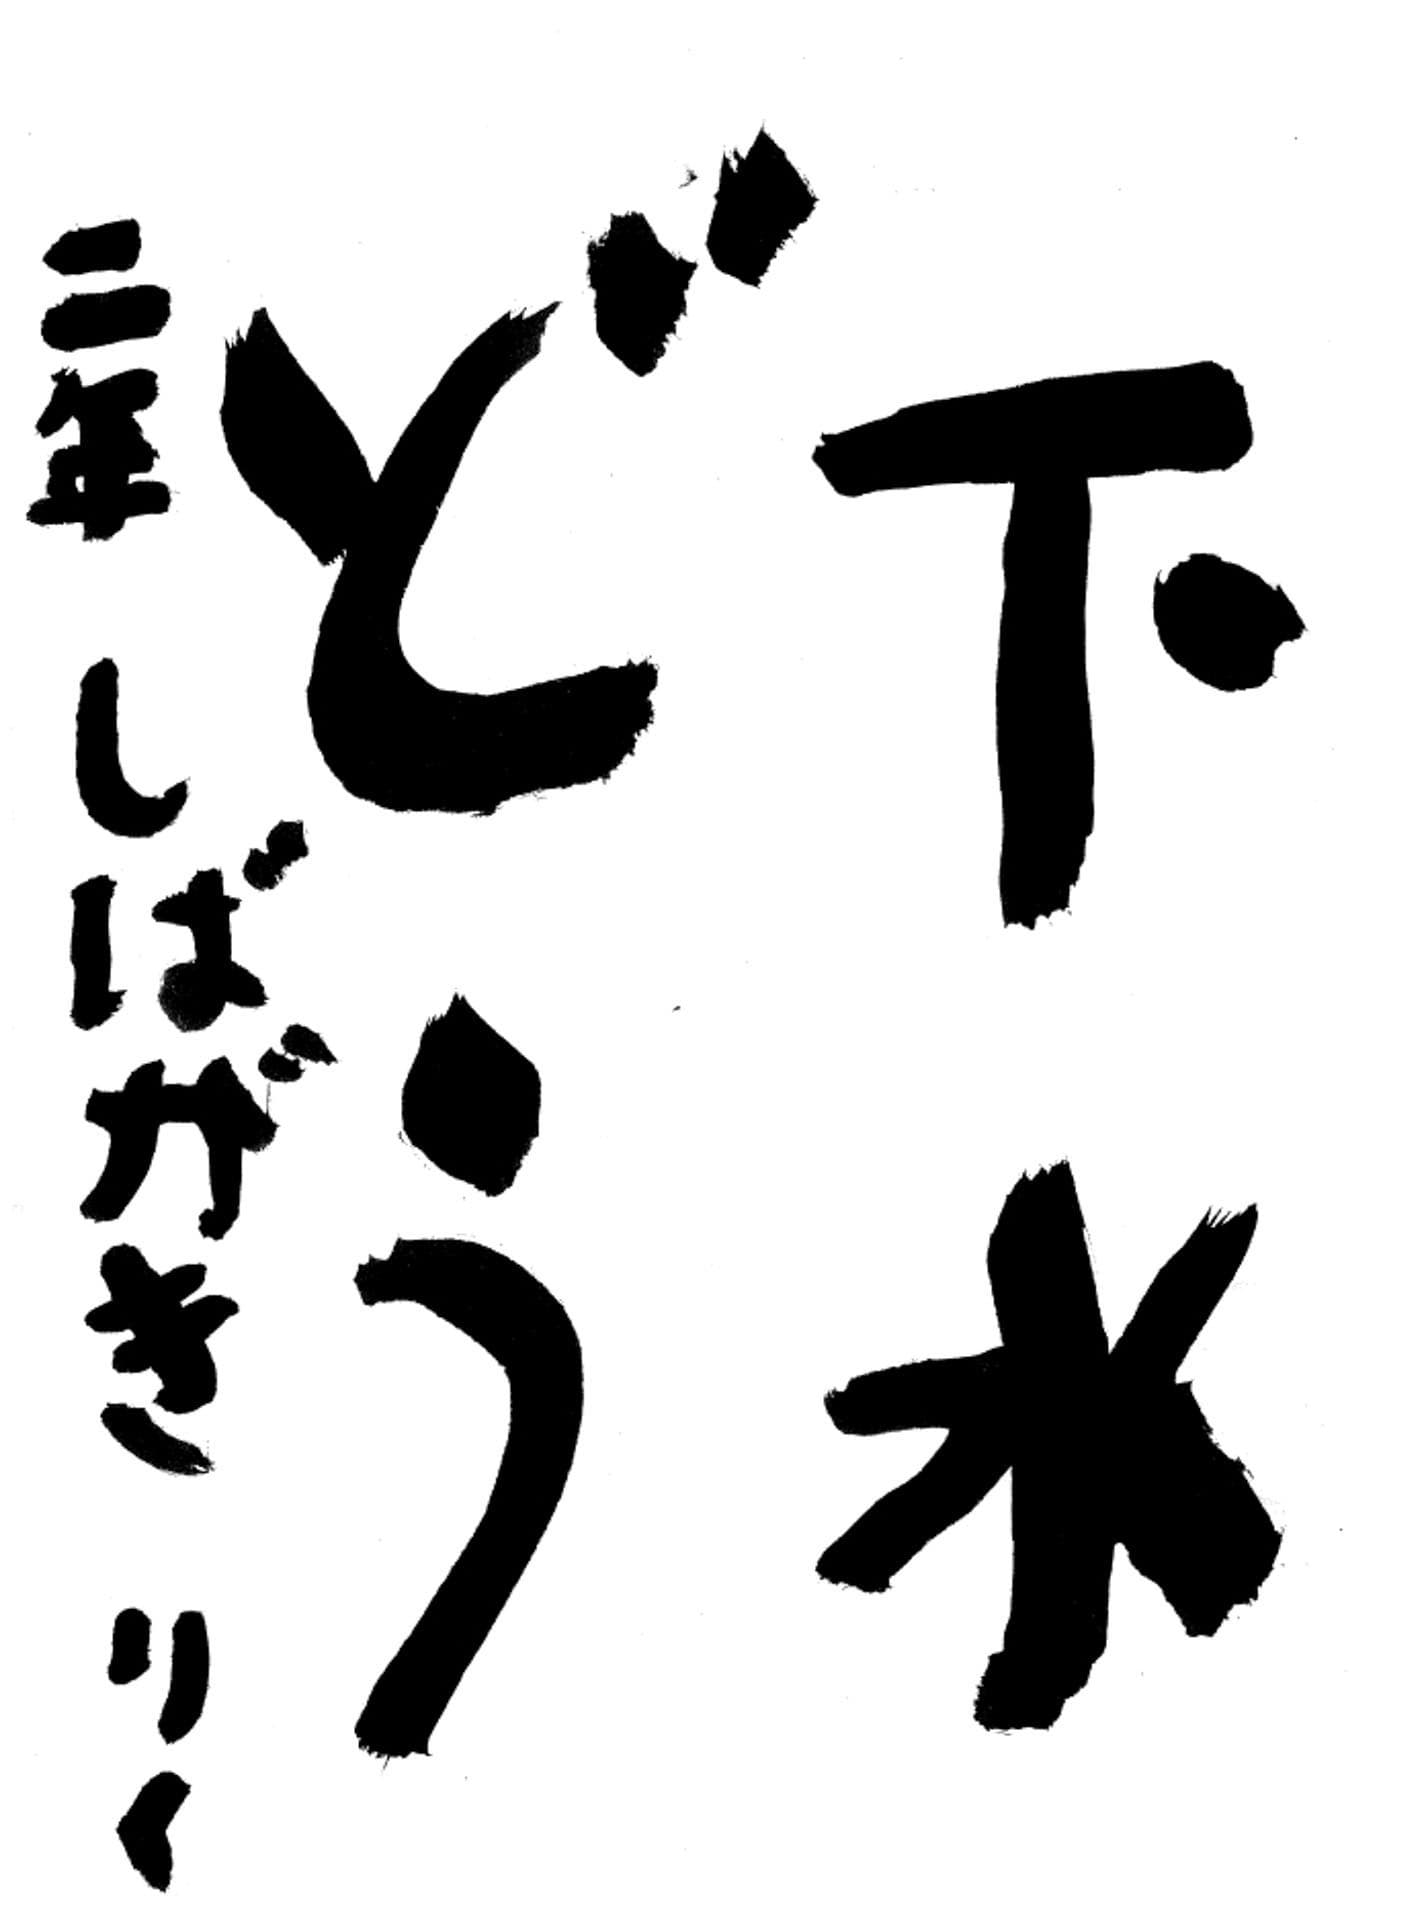 下水
どう
二年 しばがき りく